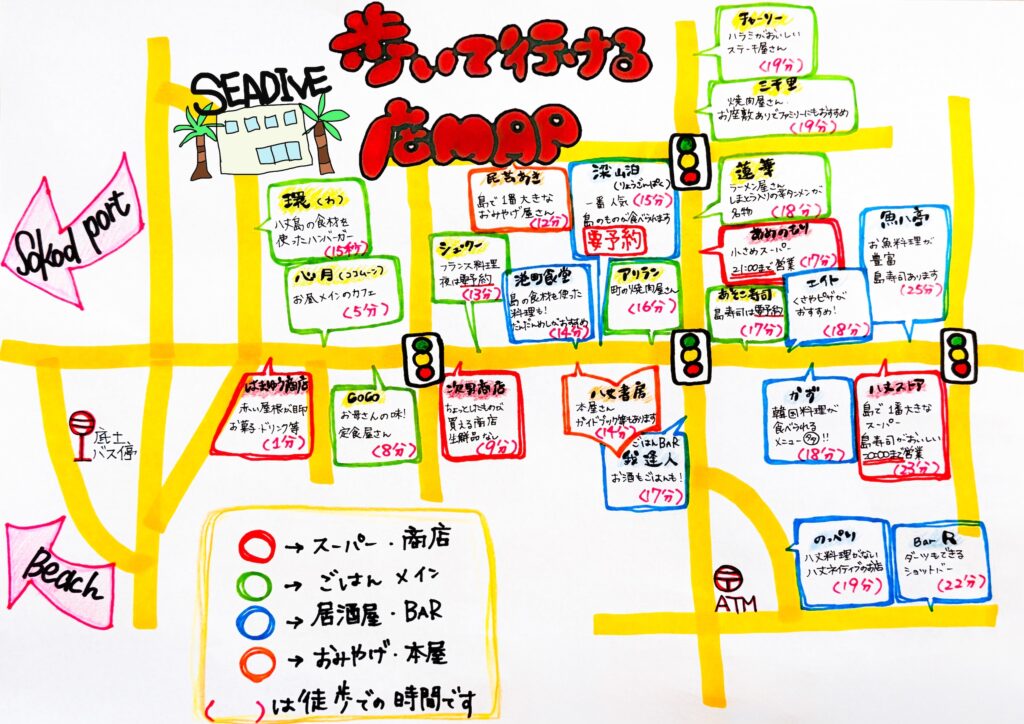 歩いて行ける
店MAP
SEADIVE
Sokod port
Beach
底土
バス停
チャーリー
ハラミがおいしい
ステーキ屋さん
(19分)
三千里
焼肉屋さん
お座敷ありでファミリーにもおすすめ
(19分)
環(わ)
八丈島の食材を
使ったハンバーガー
(15秒)
心月(ココムーン)
お昼メインのカフェ
(5分)
民芸あき
島で1番大きな
おみやげ屋さん
(12分)
梁山泊
(りょうざんぱく)
一番人気(15分)
島のものが食べられます
要予約
蓮華
ラーメン屋さん
しまとう入りの辛タンメンが
名物(18分)
あさのもり
小さめスーパー
21:00まで営業(17分)
魚八亭
お魚料理が
豊富
島寿司あります
(25分)
フランス料理
夜は要予約
(13分)
港町食堂
島の食材を使った
料理も!
(14分)
アリラン
町の焼肉屋さん
(16分)
あそこ寿司
島寿司は要予約
(17分)
エイト
くさやピザが
おすすめ!
(18分)
はまゆう商店
赤い屋根が目印
お菓子・ドリンク等
(1分)
GOGO
お母さんの味!
定食屋さん
(8分)
次男商店
ちょっとしたものが
買える商店
生鮮品なし
(9分)
八丈書房
本屋さん
ガイドブック等もあります
(14分)
ごはんBAR
お酒もごはんも!
(17分)
かず
韓国料理が
食べられる
メニュー!!
(18分)
八丈ストア
島で1番大きな
スーパー
島寿司がおいしい
20:00まで営業
(23分)
のっぺり
八丈料理がない
八丈ネイティブのお店
(19分)
Bar R
ダーツもできる
ショットバー
(22分)
ATM
→スーパー・商店
→ごはんメイン
→居酒屋・BAR
→おみやげ・本屋
( )は徒歩での時間です